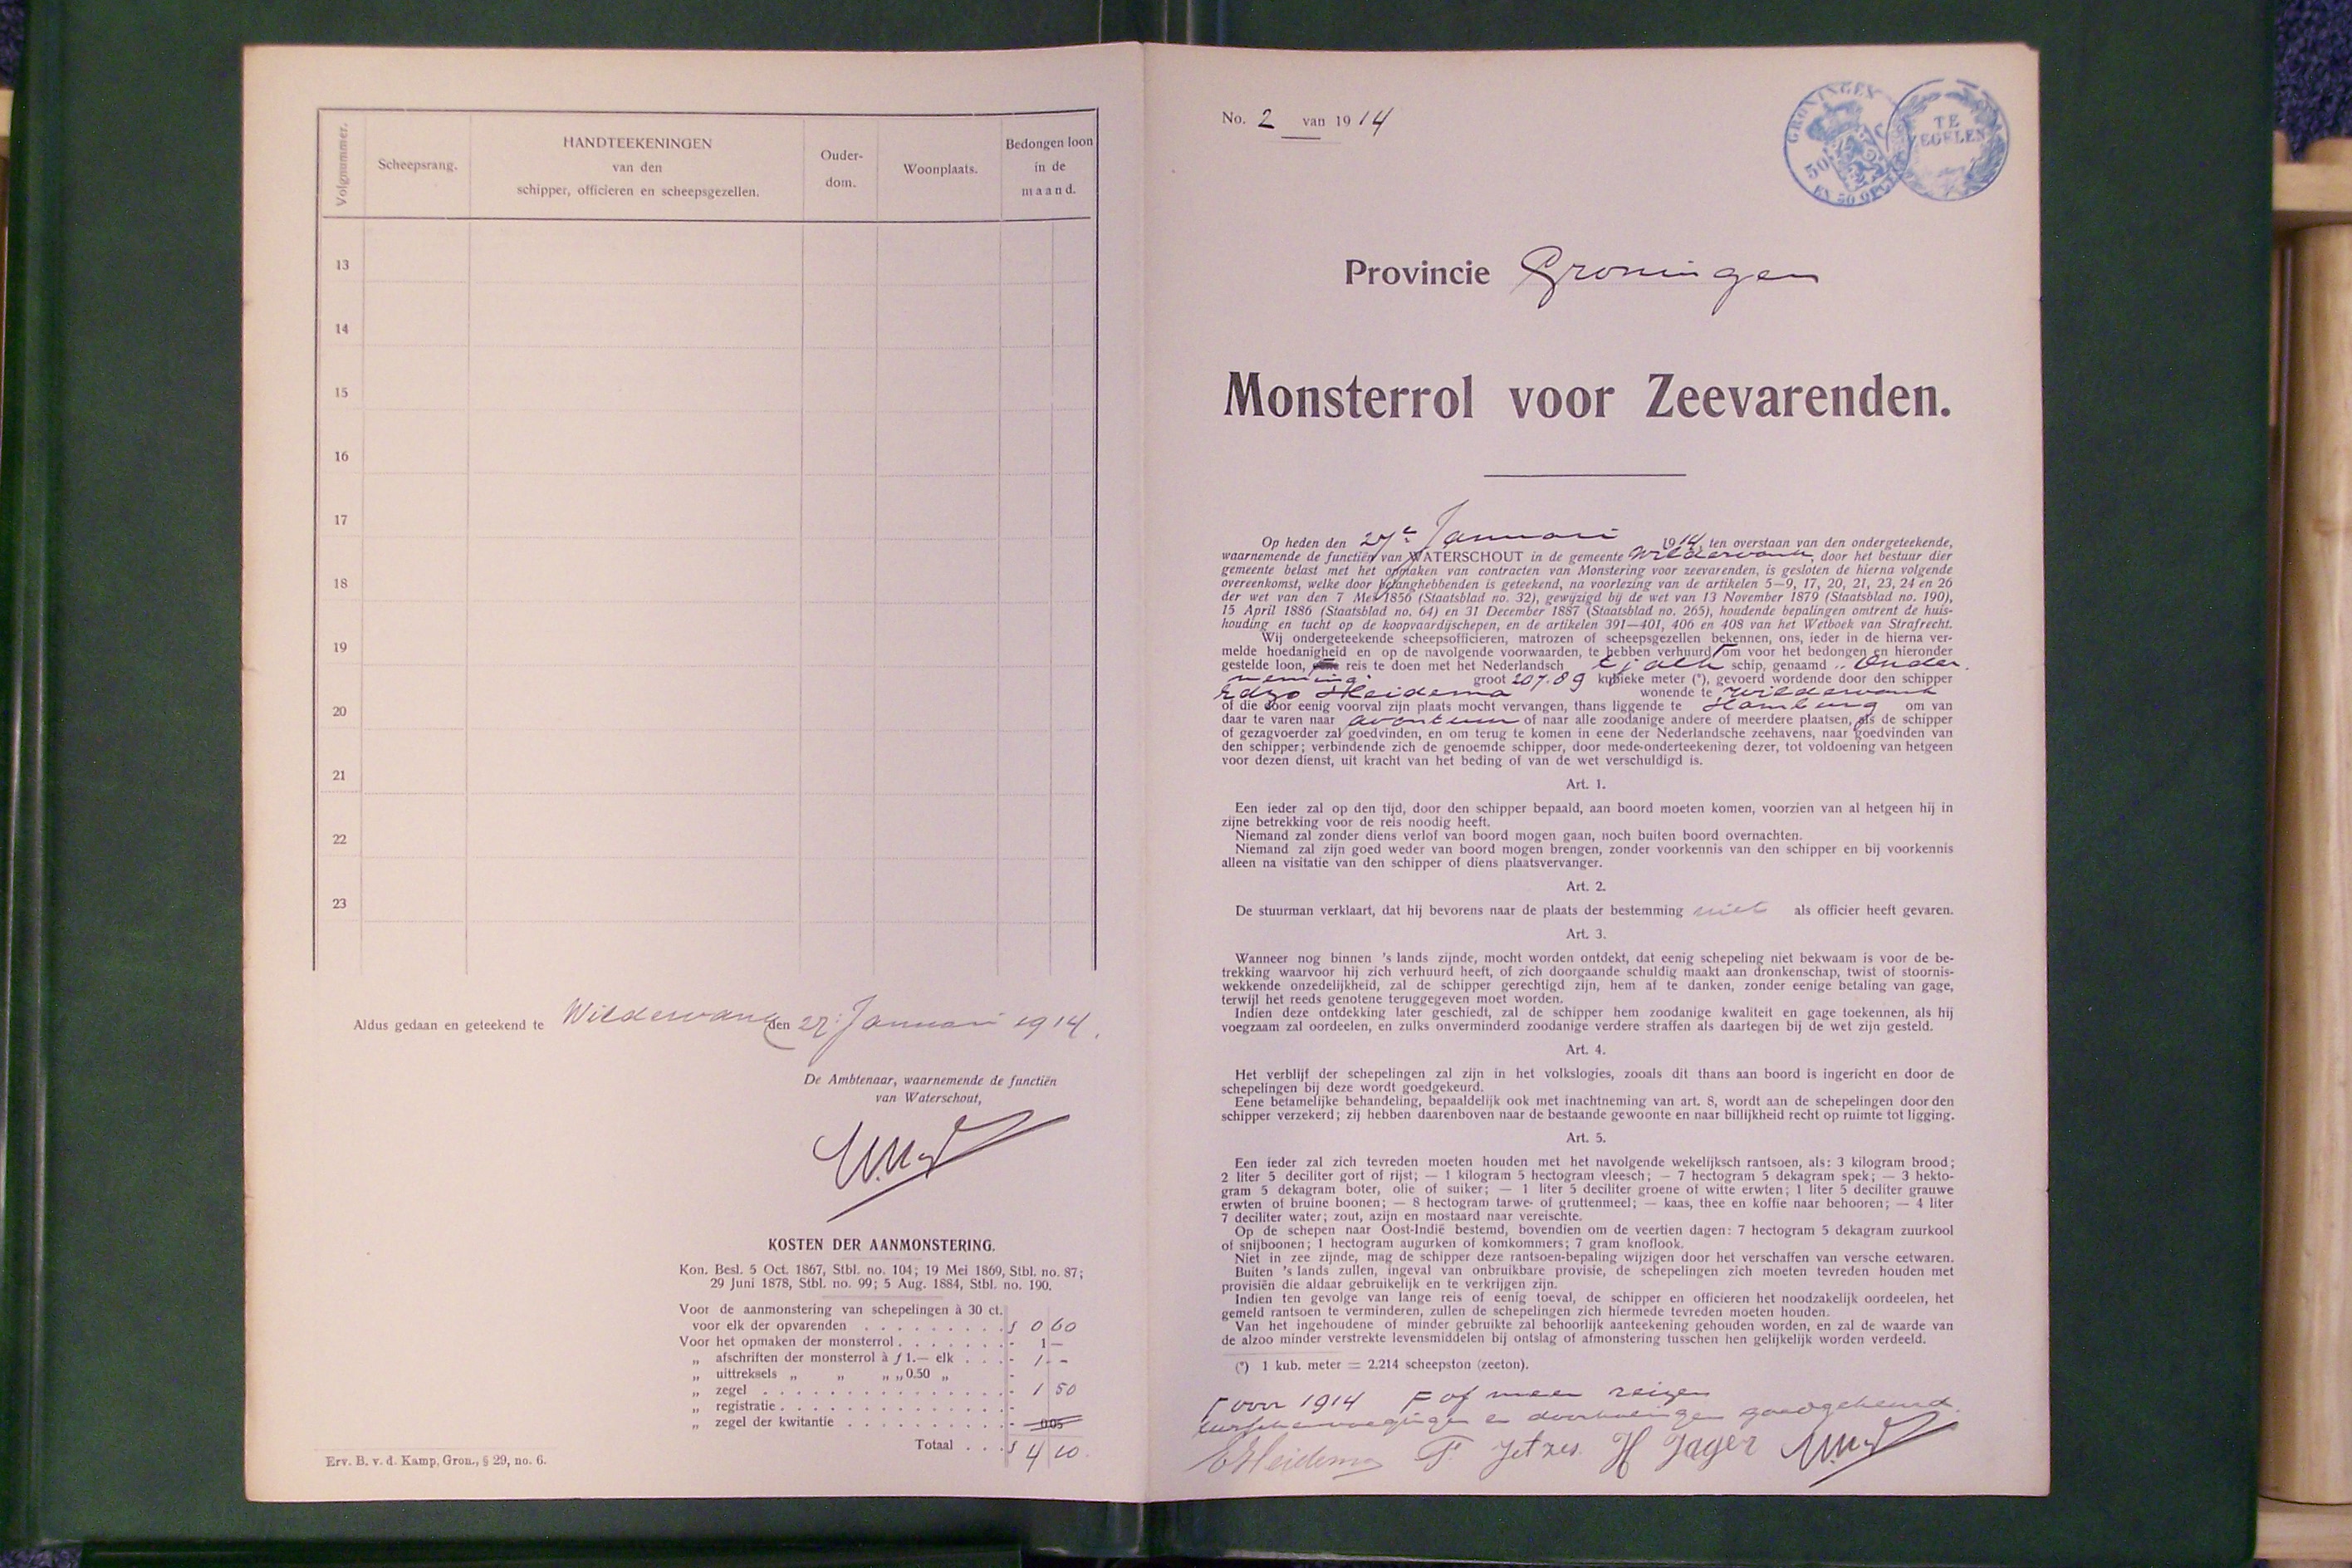 Volgnummer.
Scheepsrang.
HANDTEEKENINGEN
van den
schipper, officieren en scheepsgezellen.
Ouder-
dom.
Woonplaats.
Bedongen loon
in de
maand.
13
14
15
16
17
18
19
20
21
22
23
Aldus gedaan en geteekend te Wildervang den 27: Januari 1914.
De Ambtenaar, waarnemende de functiën
van Waterschout,
KOSTEN DER AANMONSTERING.
Kon. Besl. 5 Oct. 1867, Stbl. no. 104; 19 Mei 1869, Stbl. no. 87;
29 Juni 1878, Stbl. no. 99; 5 Aug. 1884, Stbl. no. 190.
Voor de aanmonstering van schepelingen à 30 ct.
voor elk der opvarenden . . . . . . . . . . f 0 60
Voor het opmaken der monsterrol . . . . . . . - 1 —
„ afschriften der monsterrol à f 1.— elk . . . - 1 - -
„ uittreksels „ „ „ „ 0.50 „ -
„ zegel . . . . . . . . . . . . . . . . - 1 50
„ registratie . . . . . . . . . . . . . . -
„ zegel der kwitantie . . . . . . . . . . - 0.05
Totaal . . . f 4 10.
Erv. B. v. d. Kamp, Gron., § 29, no. 6.
No. 2 van 1914
GRONINGEN
50
EN 50 OPC
TE
ZEGELEN
Provincie Groningen
Monsterrol voor Zeevarenden.
Op heden den 27e Januari 1914, ten overstaan van den ondergeteekende,
waarnemende de functiën van WATERSCHOUT in de gemeente Wildervank, door het bestuur dier
gemeente belast met het opmaken van contracten van Monstering voor zeevarenden, is gesloten de hierna volgende
overeenkomst, welke door belanghebbenden is geteekend, na voorlezing van de artikelen 5—9, 17, 20, 21, 23, 24 en 26
der wet van den 7 Mei 1856 (Staatsblad no. 32), gewijzigd bij de wet van 13 November 1879 (Staatsblad no. 190),
15 April 1886 (Staatsblad no. 64) en 31 December 1887 (Staatsblad no. 265), houdende bepalingen omtrent de huis-
houding en tucht op de koopvaardijschepen, en de artikelen 391—401, 406 en 408 van het Wetboek van Strafrecht.
Wij ondergeteekende scheepsofficieren, matrozen of scheepsgezellen bekennen, ons, ieder in de hierna ver-
melde hoedanigheid en op de navolgende voorwaarden, te hebben verhuurd om voor het bedongen en hieronder
gestelde loon, reis te doen met het Nederlandsch tjalk schip, genaamd „Onder-
neming" groot 207.89 kubieke meter (*), gevoerd wordende door den schipper
Edzo Heidema wonende te Wildervank
of die door eenig voorval zijn plaats mocht vervangen, thans liggende te Hamburg om van
daar te varen naar avontuur of naar alle zoodanige andere of meerdere plaatsen, als de schipper
of gezagvoerder zal goedvinden, en om terug te komen in eene der Nederlandsche zeehavens, naar goedvinden van
den schipper; verbindende zich de genoemde schipper, door mede-onderteekening dezer, tot voldoening van hetgeen
voor dezen dienst, uit kracht van het beding of van de wet verschuldigd is.
Art. 1.
Een ieder zal op den tijd, door den schipper bepaald, aan boord moeten komen, voorzien van al hetgeen hij in
zijne betrekking voor de reis noodig heeft.
Niemand zal zonder diens verlof van boord mogen gaan, noch buiten boord overnachten.
Niemand zal zijn goed weder van boord mogen brengen, zonder voorkennis van den schipper en bij voorkennis
alleen na visitatie van den schipper of diens plaatsvervanger.
Art. 2.
De stuurman verklaart, dat hij bevorens naar de plaats der bestemming niet als officier heeft gevaren.
Art. 3.
Wanneer nog binnen 's lands zijnde, mocht worden ontdekt, dat eenig schepeling niet bekwaam is voor de be-
trekking waarvoor hij zich verhuurd heeft, of zich doorgaande schuldig maakt aan dronkenschap, twist of stoornis-
wekkende onzedelijkheid, zal de schipper gerechtigd zijn, hem af te danken, zonder eenige betaling van gage,
terwijl het reeds genotene teruggegeven moet worden.
Indien deze ontdekking later geschiedt, zal de schipper hem zoodanige kwaliteit en gage toekennen, als hij
voegzaam zal oordeelen, en zulks onverminderd zoodanige verdere straffen als daartegen bij de wet zijn gesteld.
Art. 4.
Het verblijf der schepelingen zal zijn in het volkslogies, zooals dit thans aan boord is ingericht en door de
schepelingen bij deze wordt goedgekeurd.
Eene betamelijke behandeling, bepaaldelijk ook met inachtneming van art. 8, wordt aan de schepelingen door den
schipper verzekerd; zij hebben daarenboven naar de bestaande gewoonte en naar billijkheid recht op ruimte tot ligging.
Art. 5.
Een ieder zal zich tevreden moeten houden met het navolgende wekelijksch rantsoen, als: 3 kilogram brood;
2 liter 5 deciliter gort of rijst; — 1 kilogram 5 hectogram vleesch; — 7 hectogram 5 dekagram spek; — 3 hekto-
gram 5 dekagram boter, olie of suiker; — 1 liter 5 deciliter groene of witte erwten; 1 liter 5 deciliter grauwe
erwten of bruine boonen; — 8 hectogram tarwe- of gruttenmeel; — kaas, thee en koffie naar behooren; — 4 liter
7 deciliter water; zout, azijn en mostaard naar vereischte.
Op de schepen naar Oost-Indië bestemd, bovendien om de veertien dagen: 7 hectogram 5 dekagram zuurkool
of snijboonen; 1 hectogram augurken of komkommers; 7 gram knoflook.
Niet in zee zijnde, mag de schipper deze rantsoen-bepaling wijzigen door het verschaffen van versche eetwaren.
Buiten 's lands zullen, ingeval van onbruikbare provisie, de schepelingen zich moeten tevreden houden met
provisiën die aldaar gebruikelijk en te verkrijgen zijn.
Indien ten gevolge van lange reis of eenig toeval, de schipper en officieren het noodzakelijk oordeelen, het
gemeld rantsoen te verminderen, zullen de schepelingen zich hiermede tevreden moeten houden.
Van het ingehoudene of minder gebruikte zal behoorlijk aanteekening gehouden worden, en zal de waarde van
de alzoo minder verstrekte levensmiddelen bij ontslag of afmonstering tusschen hen gelijkelijk worden verdeeld.
(*) 1 kub. meter = 2.214 scheepston (zeeton).
voor 1914 of meer reizen
tusschenvoegingen en doorhalingen goedgekeurd.
EHeidema F. Jetzes. H Jager